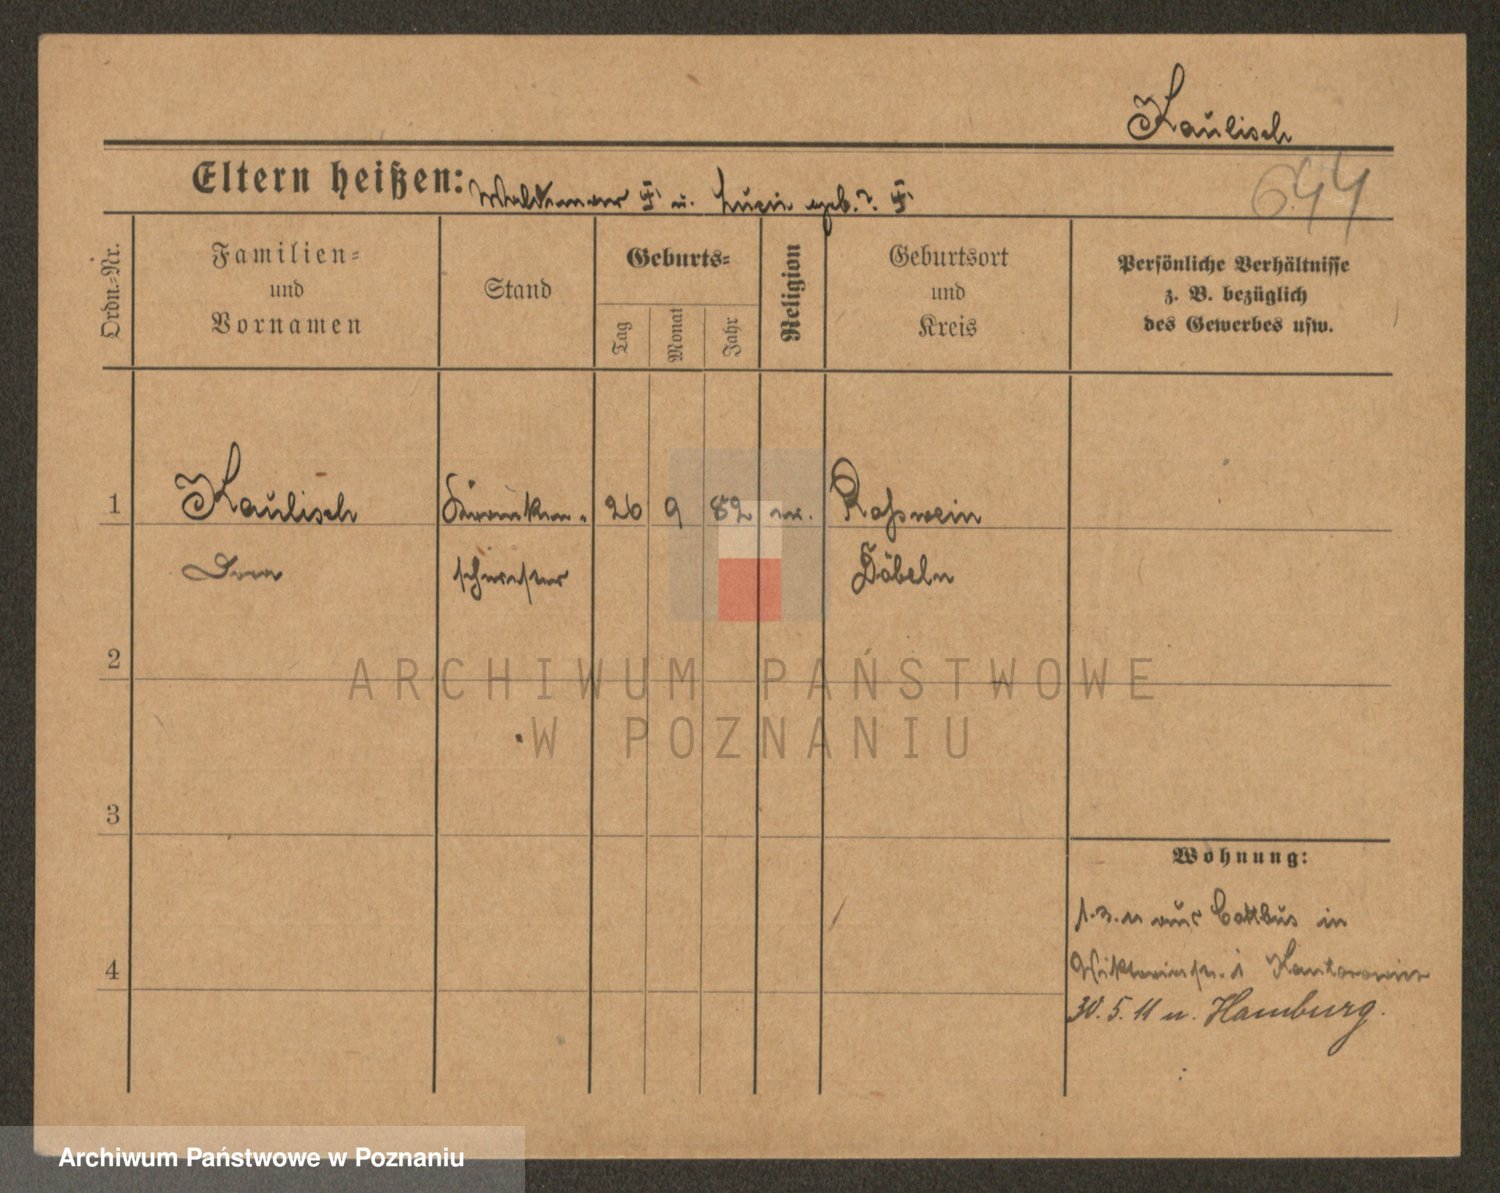 Kaulisch
644
Eltern heißen: Waldemar † u. Lucie geb. ? †
Ordn.=Nr.
Familien=
und
Vornamen
Stand
Geburts=
Tag
Monat
Jahr
Religion
Geburtsort
und
Kreis
Persönliche Verhältnisse
z. B. bezüglich
des Gewerbes usw.
1 Kaulisch 26 9 82 Roßwein
schwester Döbeln
2
ARCHIWUM PAŃSTWOWE
W POZNANIU
3
Wohnung:
1.3.11 aus Cottbus in
4
Viktoriastr. Kantorowicz
30.5.11 n. Hamburg.
Archiwum Państwowe w Poznaniu